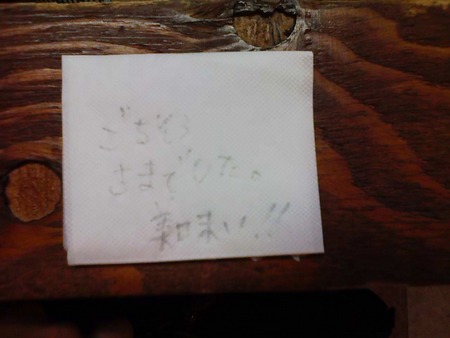 ごちそう
さまでした。
美味い!!